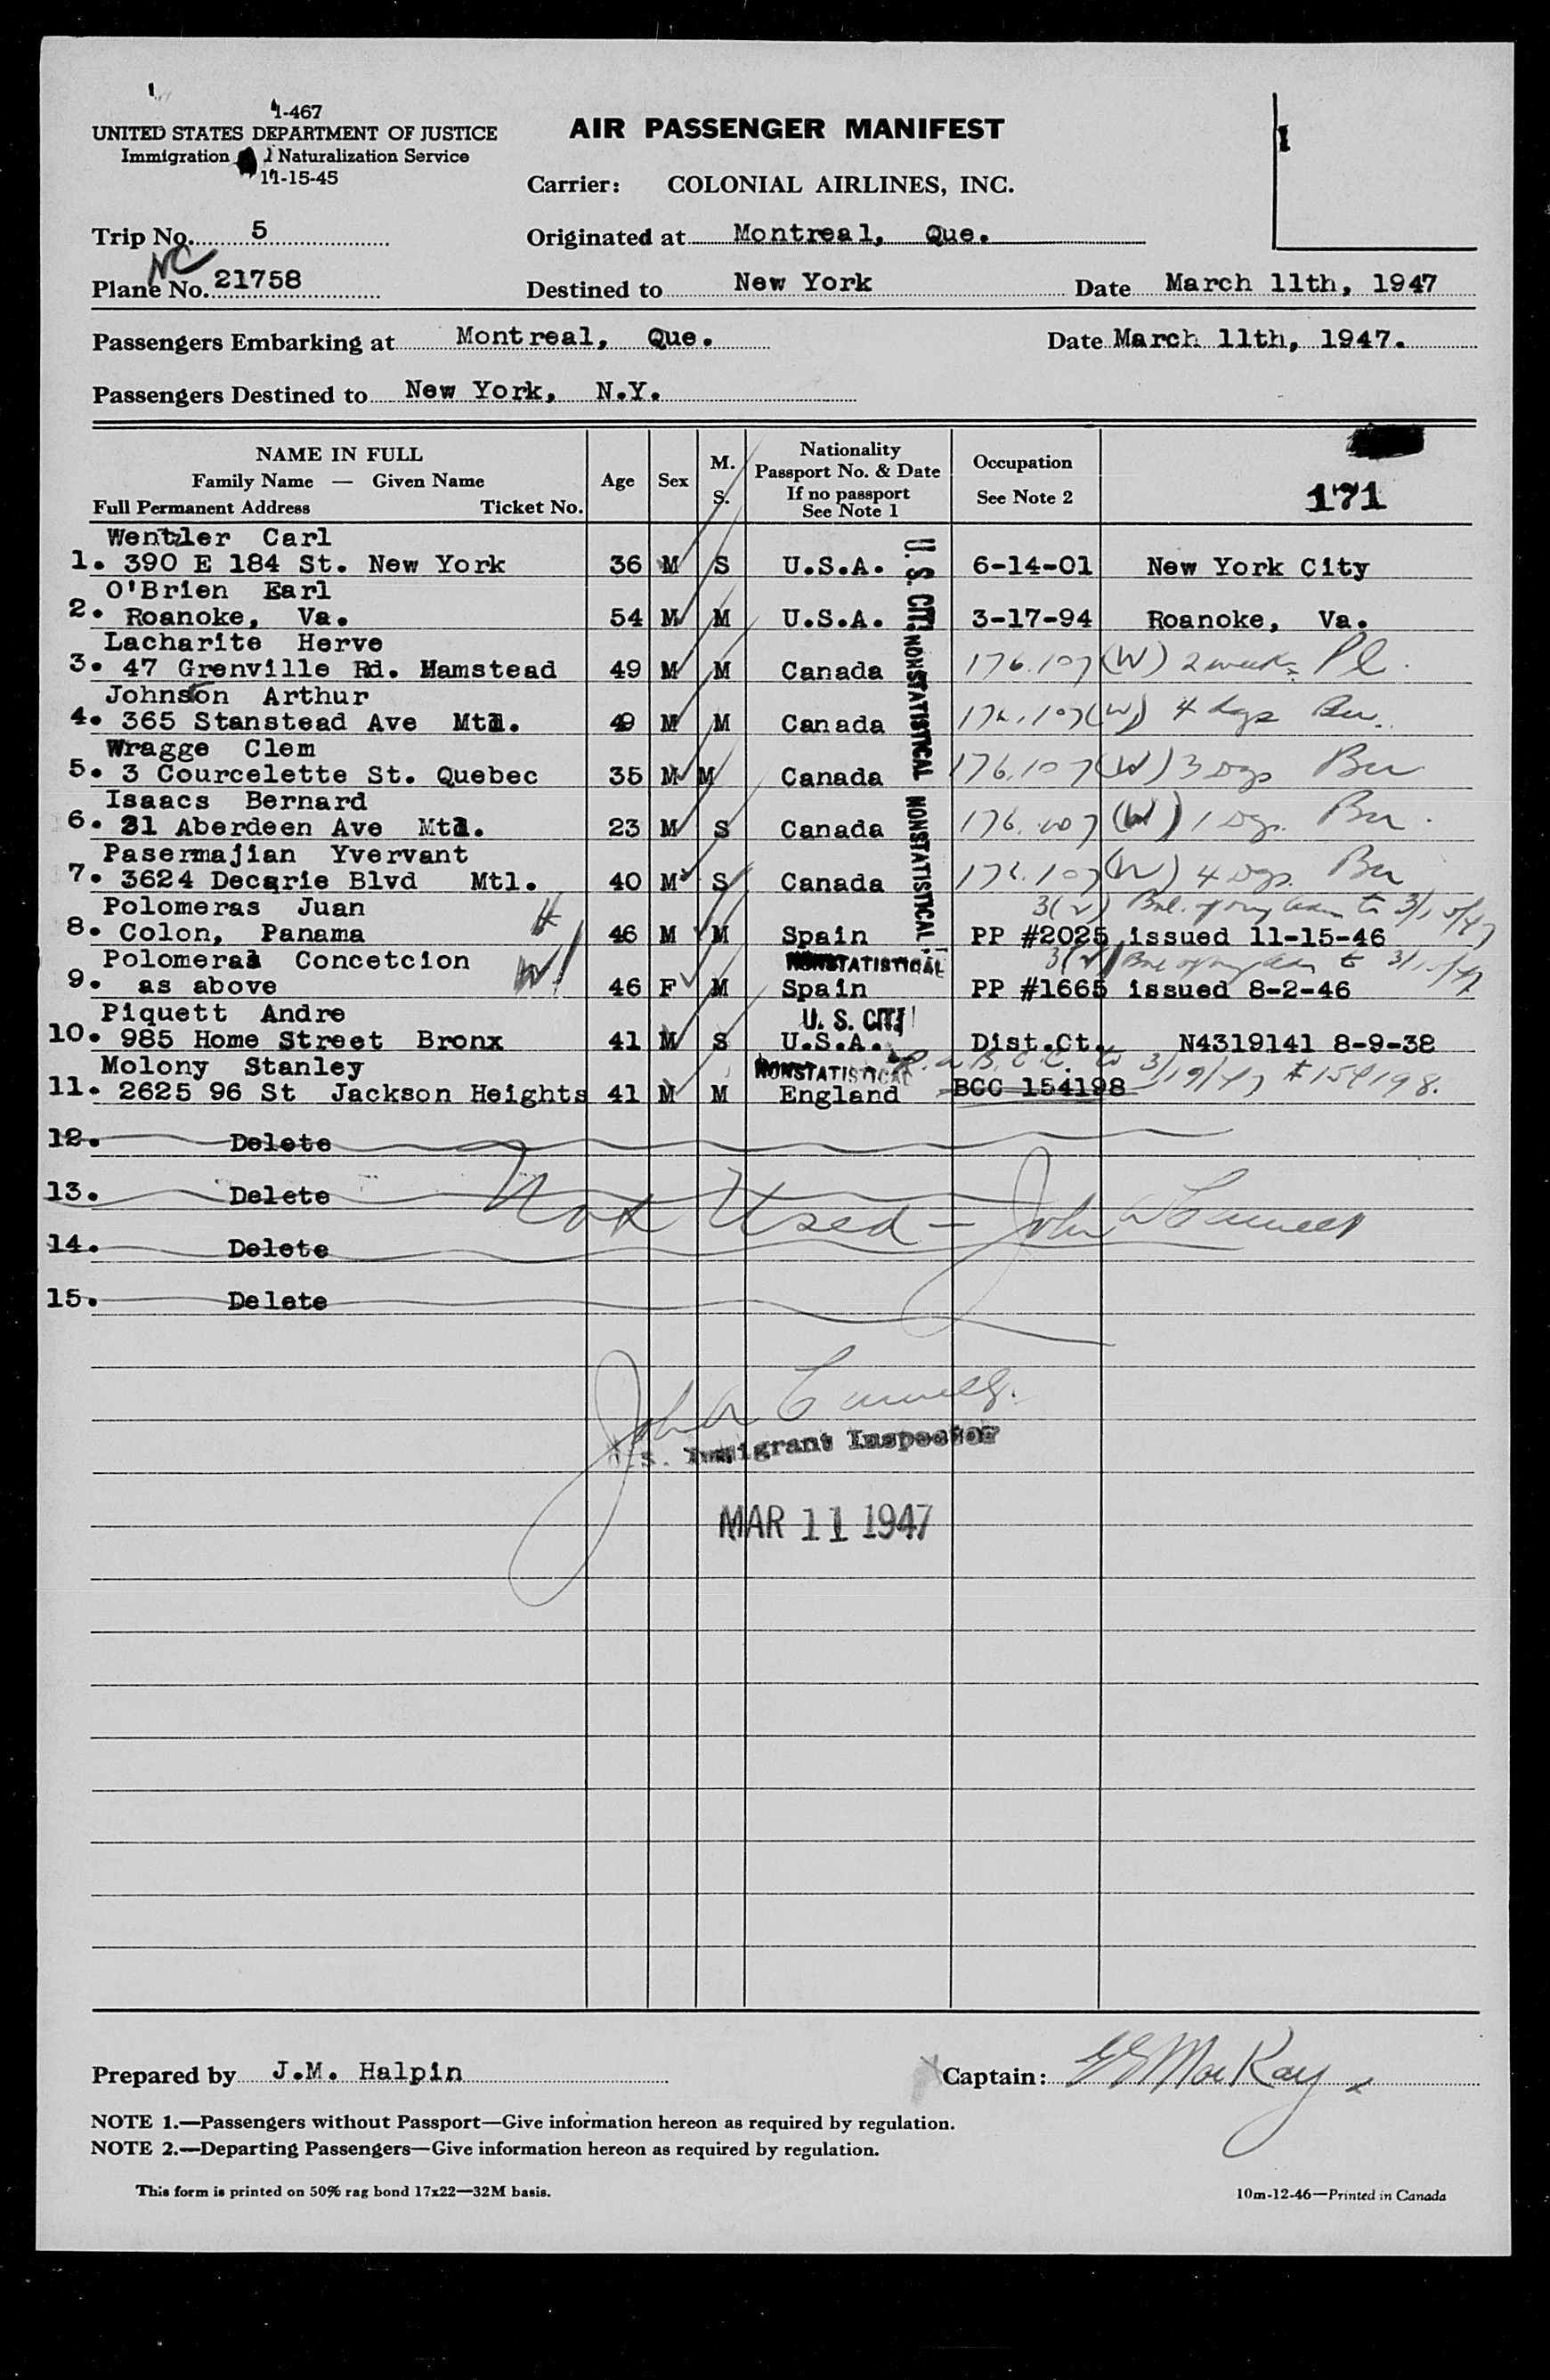 I-467
UNITED STATES DEPARTMENT OF JUSTICE
Immigration Naturalization Service
11-15-45
AIR PASSENGER MANIFEST
Carrier: COLONIAL AIRLINES, INC.
Trip No. 5
Originated at Montreal, Que.
NC
Plane No. 21758
Destined to New York
Date March 11th, 1947
Passengers Embarking at Montreal, Que.
Date March 11th, 1947.
Passengers Destined to New York, N.Y.
NAME IN FULL
Family Name — Given Name
Full Permanent Address Ticket No.
Age
Sex
M.
S.
Nationality
Passport No. & Date
If no passport
See Note 1
Occupation
See Note 2
171
Wentzler Carl
1. 390 E 184 St. New York 36 M S U.S.A. 6-14-01 New York City
O'Brien Earl
2. Roanoke, Va. 54 M M U.S.A. 3-17-94 Roanoke, Va.
U. S. CIT.
Lacharite Herve
3. 47 Grenville Rd. Hamstead 49 M M Canada 176.107 (W) 2 weeks Pl.
Johnson Arthur
4. 365 Stanstead Ave Mtl. 49 M M Canada 176.107 (W) 4 dys Bu.
NONSTATISTICAL
Wragge Clem
5. 3 Courcelette St. Quebec 35 M M Canada 176.107 (W) 3 Dys Bu
Isaacs Bernard
6. 31 Aberdeen Ave Mtl. 23 M S Canada 176.107 (W) 1 Dy. Bu.
Pasermajian Yvervant
7. 3624 Decarie Blvd Mtl. 40 M S Canada 176.107 (W) 4 Dys. Bu
NONSTATISTICAL
3(2) Bal. of to 3/15/47
Polomeras Juan
8. Colon, Panama 46 M M Spain PP #2025 issued 11-15-46
3(2) Bal of to 3/15/47
Polomeras Concetcion NONSTATISTICAL
9. as above 46 F M Spain PP #1665 issued 8-2-46
Piquett Andre U. S. CIT
10. 985 Home Street Bronx 41 M S U.S.A. Dist.Ct. N4319141 8-9-38
Molony Stanley NONSTATISTICAL B.C.C. to 3/19/47 #154198.
11. 2625 96 St Jackson Heights 41 M M England BCC 154198
12. Delete
13. Delete
Not Used - John
14. Delete
15. Delete
John
U.S. Immigrant Inspector
MAR 11 1947
Prepared by J.M. Halpin
Captain: MacKay x
NOTE 1.—Passengers without Passport—Give information hereon as required by regulation.
NOTE 2.—Departing Passengers—Give information hereon as required by regulation.
This form is printed on 50% rag bond 17x22—32M basis.
10m-12-46—Printed in Canada